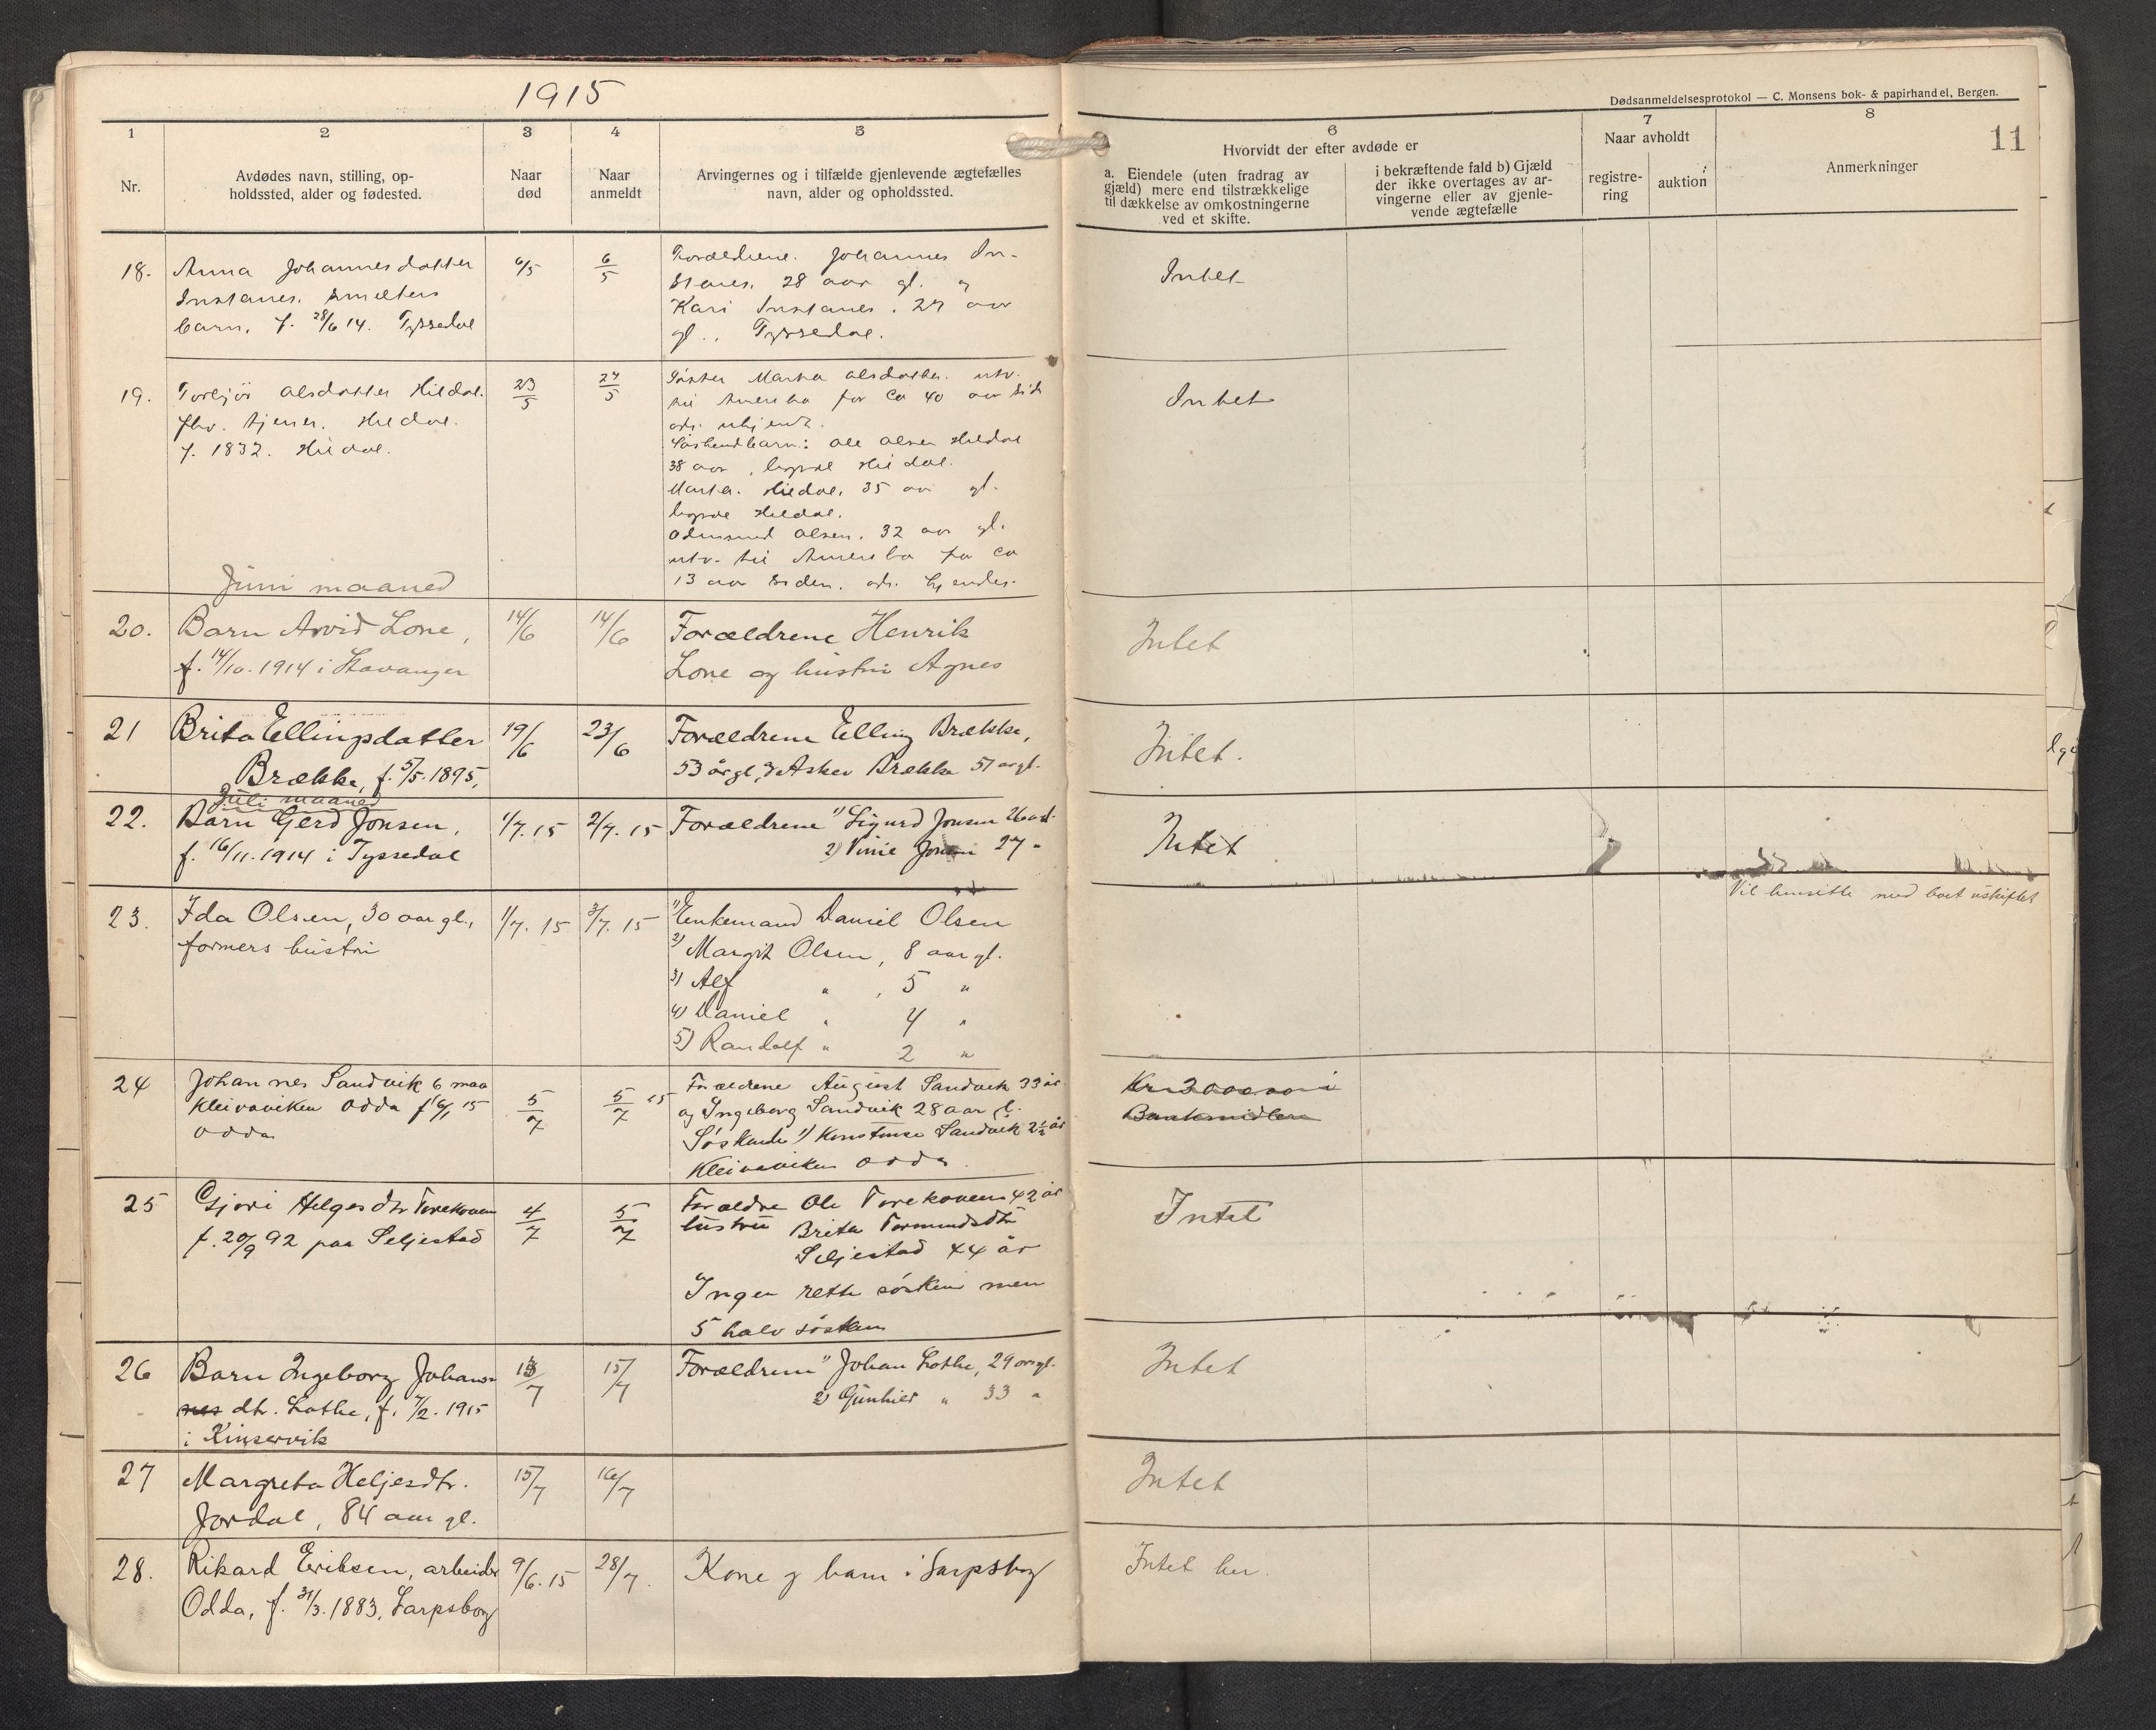 1915
Dødsanmeldelsesprotokol — C. Monsens bok- & papirhandel, Bergen.
11
1
2
3
4
5
6
7
8
Nr.
Avdødes navn, stilling, op-
holdssted, alder og fødested.
Naar
død
Naar
anmeldt
Arvingernes og i tilfælde gjenlevende ægtefælles
navn, alder og opholdssted.
Hvorvidt der efter avdøde er
a. Eiendele (uten fradrag av
gjæld) mere end tilstrækkelige
til dækkelse av omkostningerne
ved et skifte.
i bekræftende fald b) Gjæld
der ikke overtages av ar-
vingerne eller av gjenle-
vende ægtefælle
Naar avholdt
registre-
ring
auktion
Anmerkninger
18.
Anna Johannesdatter
Instanes. smelters
barn. f. 28/6 14. Tyssedal
6/5
6/5
Forældrene. Johannes In-
stanes. 28 aar gl. og
Kari Instanes. 27 aar
gl., Tyssedal.
Intet
19.
Torbjør Olsdatter Hildal.
fhv. tjener. Hildal.
f. 1832. Hildal.
23/5
27/5
Søster Marta Olsdatter. utv.
til Amerika for ca 40 aar sid
adr. ukjendt.
Søskendbarn: Ole Olsen Hildal
38 aar, bopæl Hildal.
Marta Hildal, 35 aar gl.
bopæl Hildal.
Odmund Olsen. 32 aar gl.
utv. til Amerika for ca
13 aar siden. adr. kjendes.
Intet
Juni maaned
20.
Barn Arvid Lone,
f. 14/10. 1914 i Stavanger
14/6
14/6
Forældrene Henrik
Lone og hustru Agnes
Intet
21
Brita Ellingsdatter
Brække, f. 5/5. 1895,
19/6
23/6
Forældrene Elling Brække,
53 år gl, Brække 51 ar gl.
Intet.
Juli maaned
22.
Barn Gerd Jonsen,
f. 16/11. 1914 i Tyssedal
1/7. 15
2/7. 15
Forældrene 1) Sigurd Jonsen 26 aar gl.
2) Jonsen 27 "
Intet
23.
Ida Olsen, 30 aar gl.,
formers hustru
1/7. 15
3/7. 15
1) Enkemand Daniel Olsen
2) Margit Olsen, 8 aar gl.
3) Alf " , 5 "
4) Daniel " 4 "
5) Randolf " 2 "
Vil hensitte med boet uskiftet
24
Johannes Sandvik 6 maa
Kleivaviken Odda f 16/1 15
Odda
5/7
5/7 15
Forældrene August Sandvik 33 år
og Ingeborg Sandvik 28 aar gl.
Søskende 1) Konstanse Sandvik 2½ år
Kleivaviken Odda
Kr 3000.00 i
Bankmidler
25
Gjøri Helgesdtr Torekoven
f. 20/9 92 paa Seljestad
4/7
5/7
Forældre Ole Torekoven 42 år
hustru Brita Tormundsdtr
Seljestad 44 år
Ingen rette søsken men
5 halv søsken
Intet
26
Barn Ingeborg Johans-
nes dtr. Lothe, f. 7/2. 1915
i Kinservik
13/7
15/7
Forældrene 1) Johan Lothe, 29 aar gl.
2) Gunhild " 33 "
Intet
27
Margreta Heljesdtr.
Jordal, 84 aar gl.
15/7
16/7
Intet
28.
Rikard Eriksen, arbeider
Odda, f. 31/3. 1883, Sarpsborg
9/6. 15
28/7.
Kone og barn i Sarpsborg
Intet her.